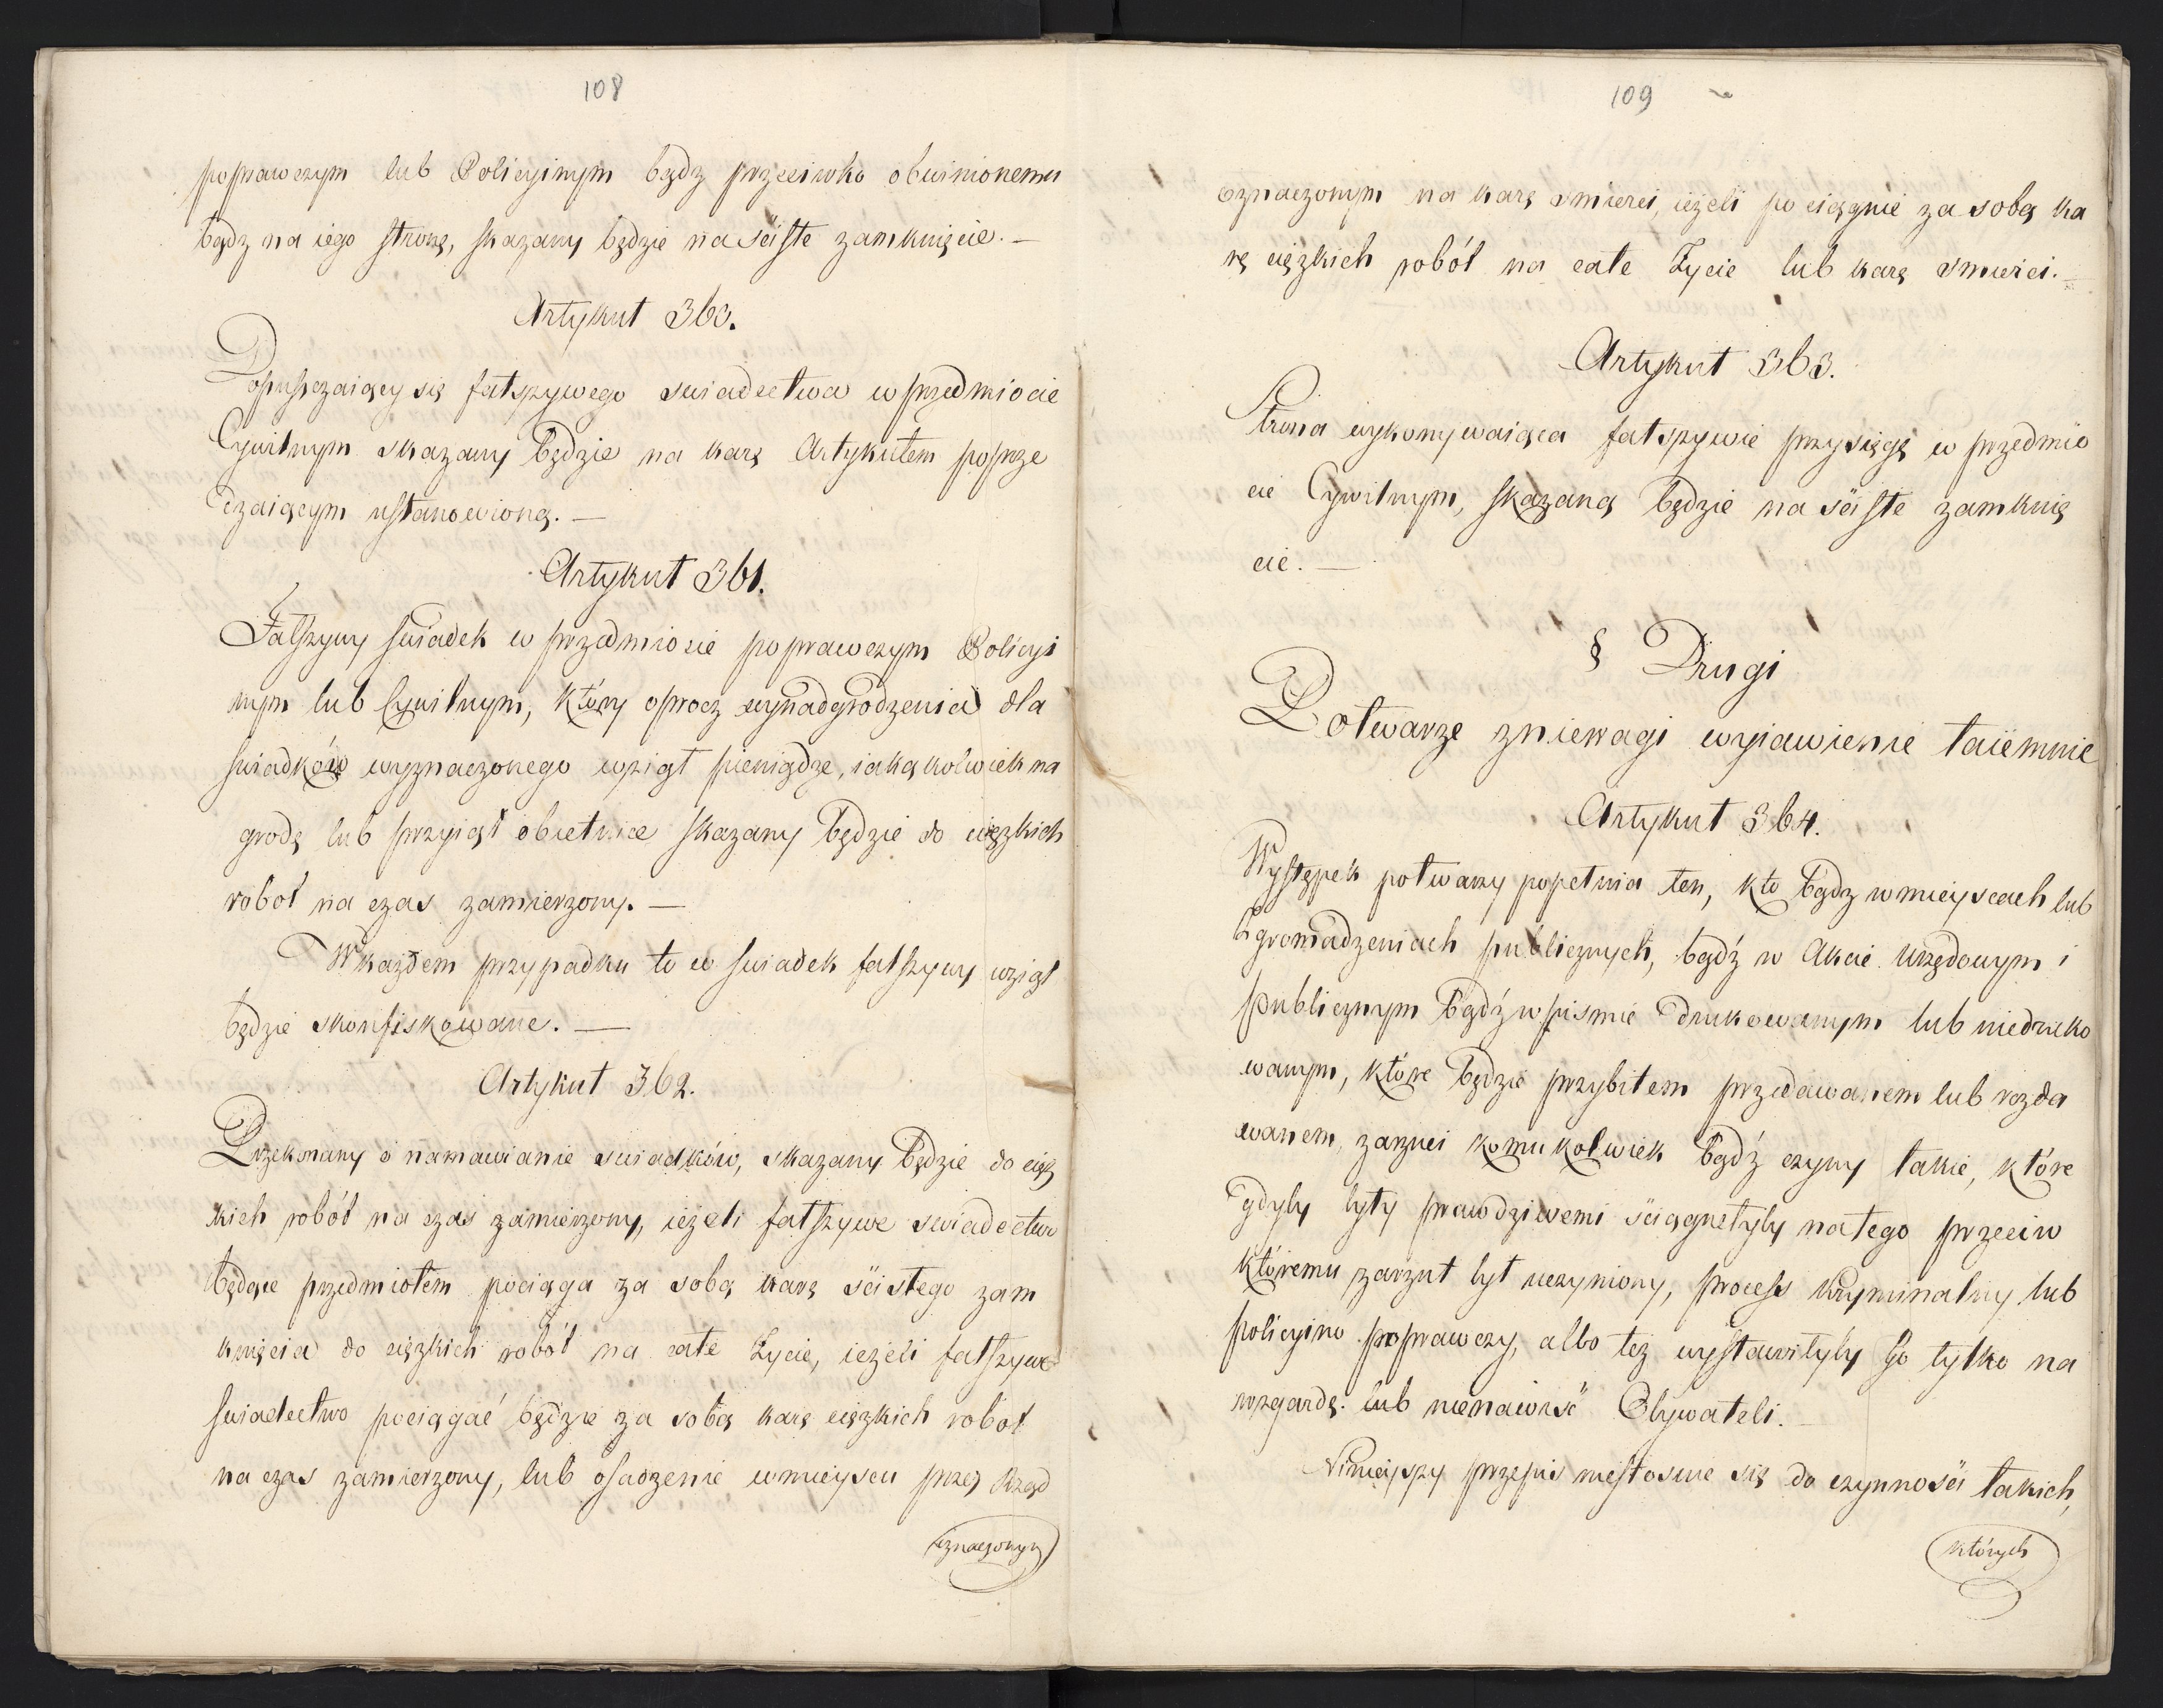 108
poprawczym lub Policyinym bądz przeciwko obwinionemu
bądz na iego stronę, skazany będzie na sćisłe zamknięcie. —
Artykuł 360.
Dopuszczaiący się fałszywego swiadectwa w przedmiocie
Cywilnym skazany będzie na karę Artykułem poprze
dzaiącym ustanowioną. —
Artykuł 361.
Fałszywy swiadek w przedmiocie poprawczym Policyi
nym lub Cywilnym, który oprocz wynadgrodzenia dla
swiadków wyznaczonego wziął pieniądze, iakąkolwiek na
grodę lub przyiął obietnice skazany będzie do cięzkich
robot na czas zamierzony. —
W każdem przypadku to co swiadek fałszywy wziął
będzie skonfiskowane. —
Artykuł 362.
Przekonany o namawianie swiadków, skazany będzie do cięz
kich robót na czas zamierzony, ieżeli fałszywe swiadectwo
będące przedmiotem pociąga za sobą karę sćisłego zam
knięcia do cięzkich robót na całe Zycie, ieżeli fałszywe
swiadectwo pociągać będzie za sobą karę cięzkich robot
na czas zamierzony, lub osadzenie w mieyscu przez Rząd
oznaczonym
109
oznaczonym na karę smierci, ieżeli pociągnie za sobą ka
rę cięzkich robót na całe Zycie lub karę smierci. —
Artykuł 363.
Strona wykonywaiąca fałszywie przysięgę w przedmio
cie Cywilnym, skazaną będzie na sćisłe zamknię
cie. —
§ Drugi
Potwarze zniewagi wyiawienie taiemnic
Artykuł 364.
Występek potwarzy popełnia ten, kto bądz w mieyscach lub
Zgromadzeniach publicznych, bądź w Akcie Urzędowym i
publicznym bądź w pismie drukowanym lub niedruko
wanym, które będzie przybitem przedawanem lub rozda
wanem, zarzuci komukolwiek bądź czyny takie, które
gdyby były prawdziwemi sćiągnęłyby na tego przeciw
któremu zarzut był uczyniony, process Kryminalny lub
policyino poprawczy, albo też wystawiłyby Go tylko na
wzgardę lub nienawisć Obywateli. —
Ninieyszy przepis niestosuie się do czynnosći takich,
których